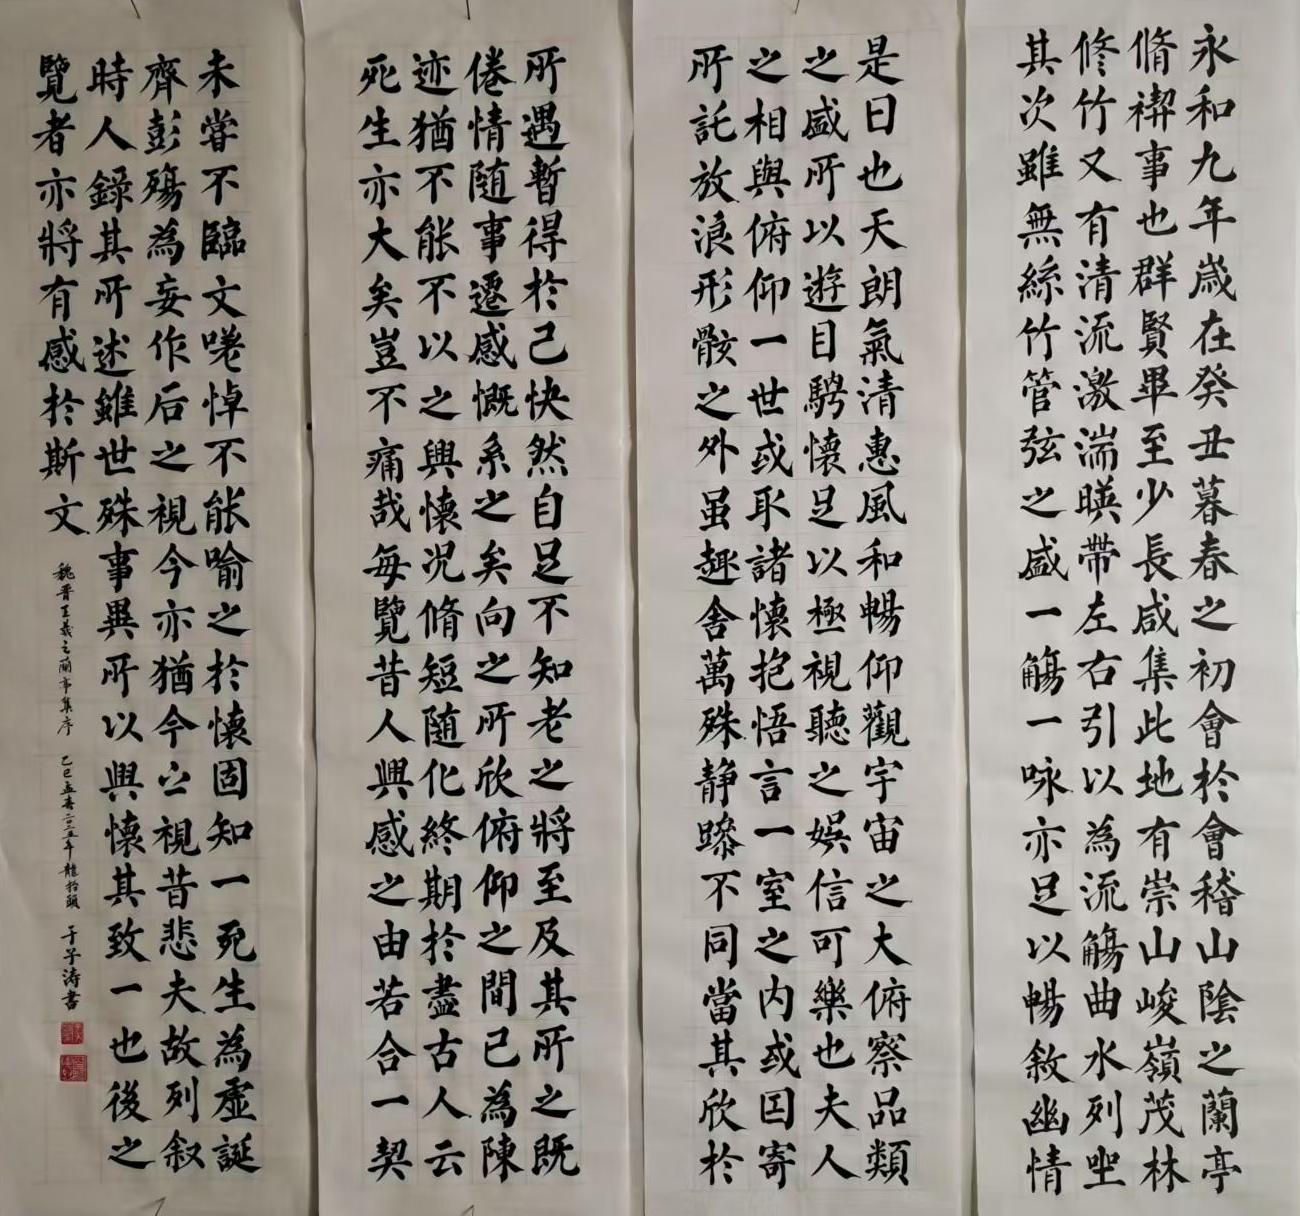 永和九年嵗在癸丑暮春之初會於會稽山陰之蘭亭
脩禊事也群賢畢至少長咸集此地有崇山峻嶺茂林
修竹又有清流激湍暎帶左右引以為流觴曲水列坐
其次雖無絲竹管弦之盛一觴一咏亦足以暢敘幽情
是日也天朗氣清惠風和暢仰觀宇宙之大俯察品類
之盛所以遊目騁懷足以極視聽之娛信可樂也夫人
之相與俯仰一世或取諸懷抱悟言一室之内或因寄
所託放浪形骸之外虽趣舍萬殊静躁不同當其欣於
所遇暫得於己快然自足不知老之將至及其所之既
倦情随事遷感慨系之矣向之所欣俯仰之間已為陳
迹猶不能不以之興懷况脩短随化終期於盡古人云
死生亦大矣豈不痛哉每覽昔人興感之由若合一契
未甞不臨文嗟悼不能喻之於懷固知一死生為虛誕
齊彭殤為妄作后之視今亦猶今之視昔悲夫故列叙
時人錄其所述雖世殊事異所以興懷其致一也後之
覽者亦將有感於斯文
魏晋王羲之蘭亭集序 乙巳孟春二〇二五年龍抬頭 于子涛書